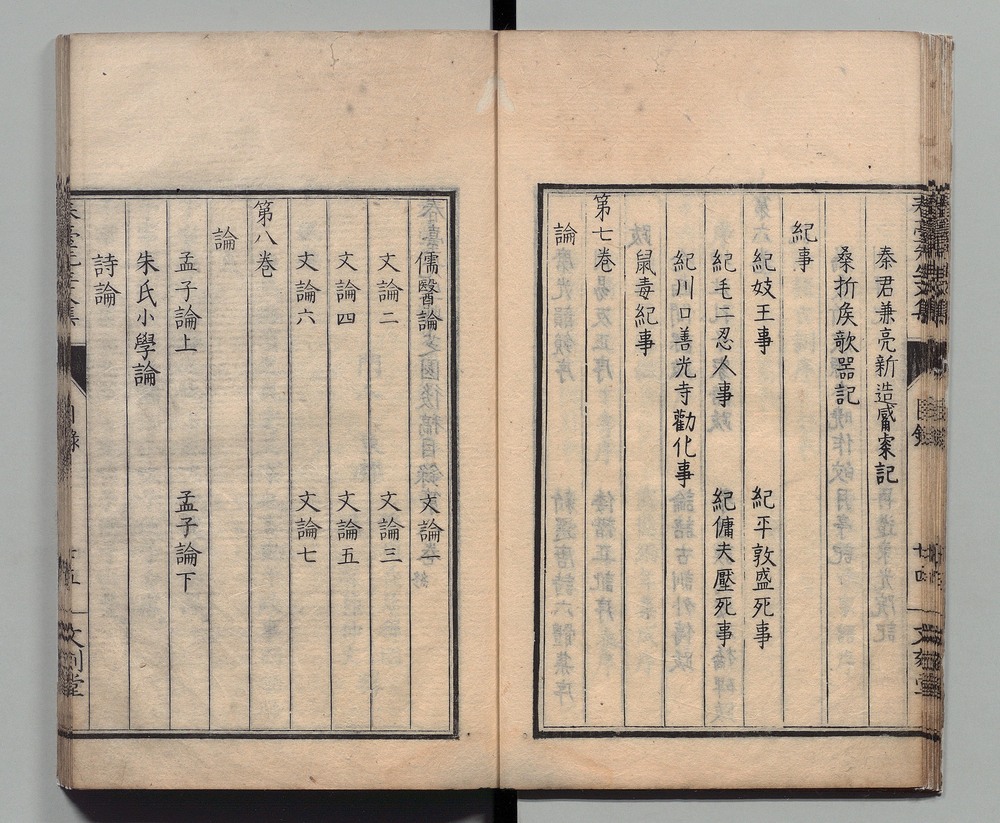 秦君兼亮新造感㝮記
桑折矦歌器記
紀事
紀妓王事 紀平敦盛死事
紀毛二忍人事 紀傭夫壓死事
紀川口善光寺勸化事
鼠毒紀事
第七卷
論
儒醫論 文論一
文論二 文論三
文論四 文論五
文論六 文論七
第八卷
論
孟子論上 孟子論下
朱氏小學論
詩論
目錄
文刻堂